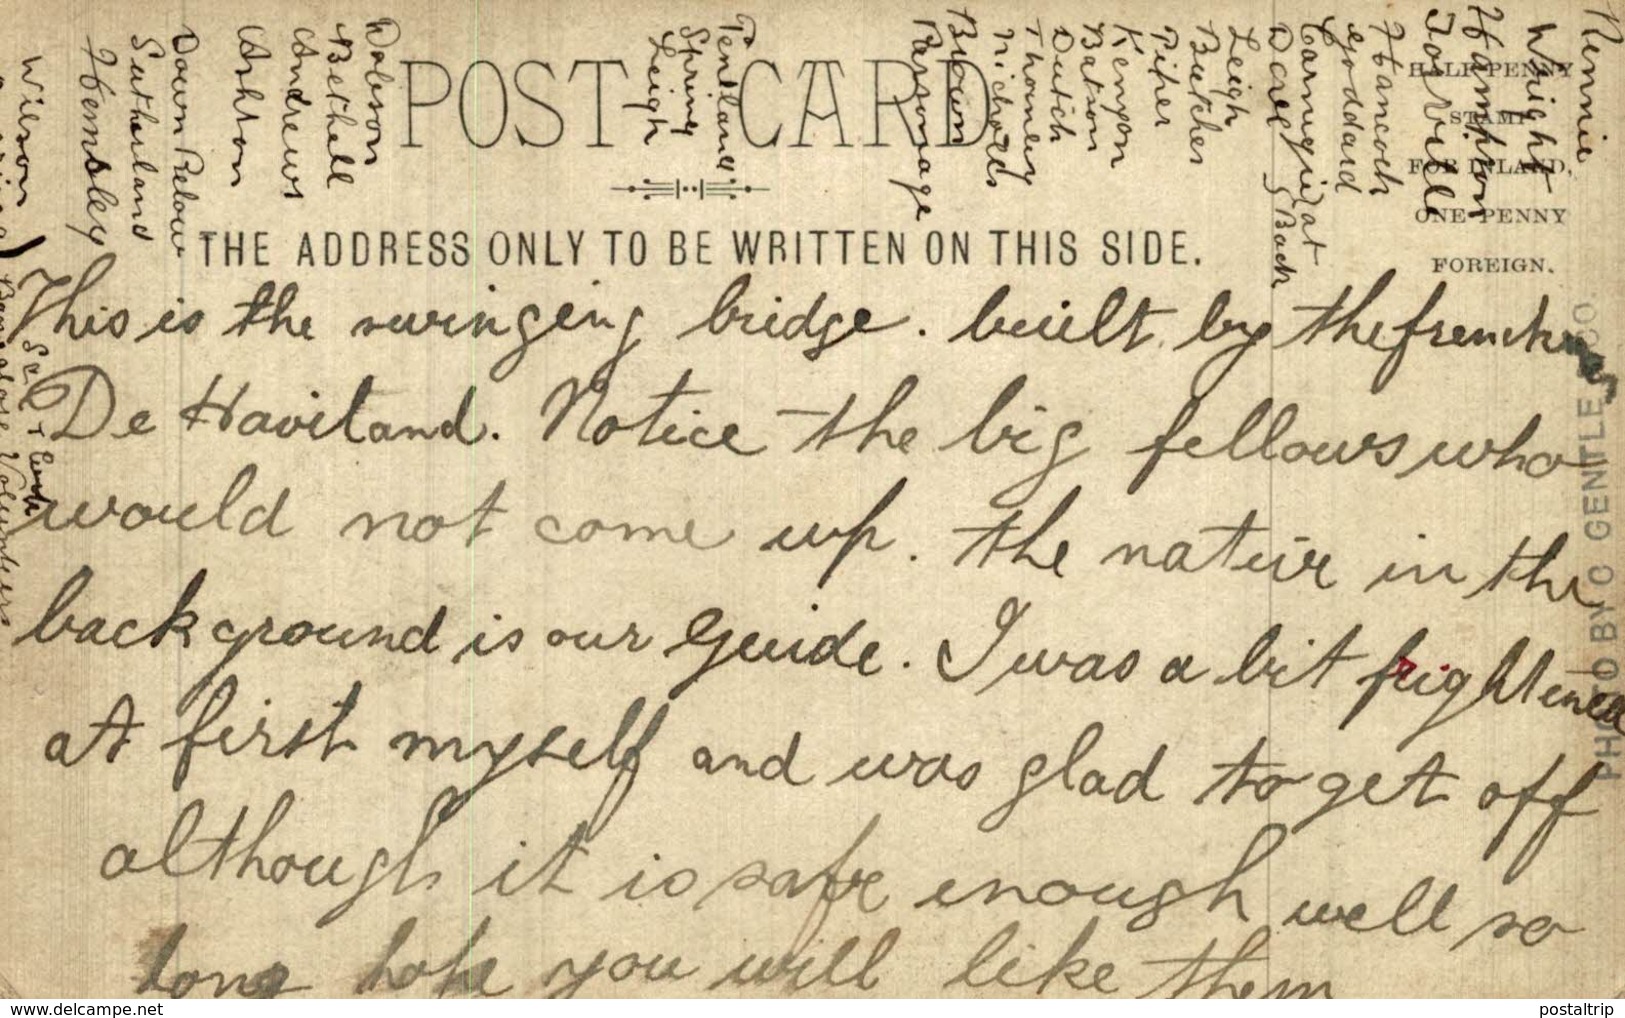 POST CARD
THE ADDRESS ONLY TO BE WRITTEN ON THIS SIDE.
HALF-PENNY
STAMP
FOR INLAND,
ONE PENNY
FOREIGN.
Rennie
Wright
Hampson
Hancock
Goddard
Leigh
Butcher
Piper
Kenyon
Batson
Dutch
Thornley
Nichols
Brown
Parsonage
Pentland
Spring
Leigh
Dobson
Bethell
Andrews
Ashton
Down Pelow
Sutherland
Hemsley
Wilson
Bangalore Volunteers
This is the swinging bridge. built by the french
De Haviland. Notice the big fellows who
would not come up. the nativ in the
background is our Guide. I was a bit frightened
at first myself and was glad to get off
although it is safe enough well so
long hope you will like them
PHOTO BY C GENTLE CO
delcampe.net
postaltrip